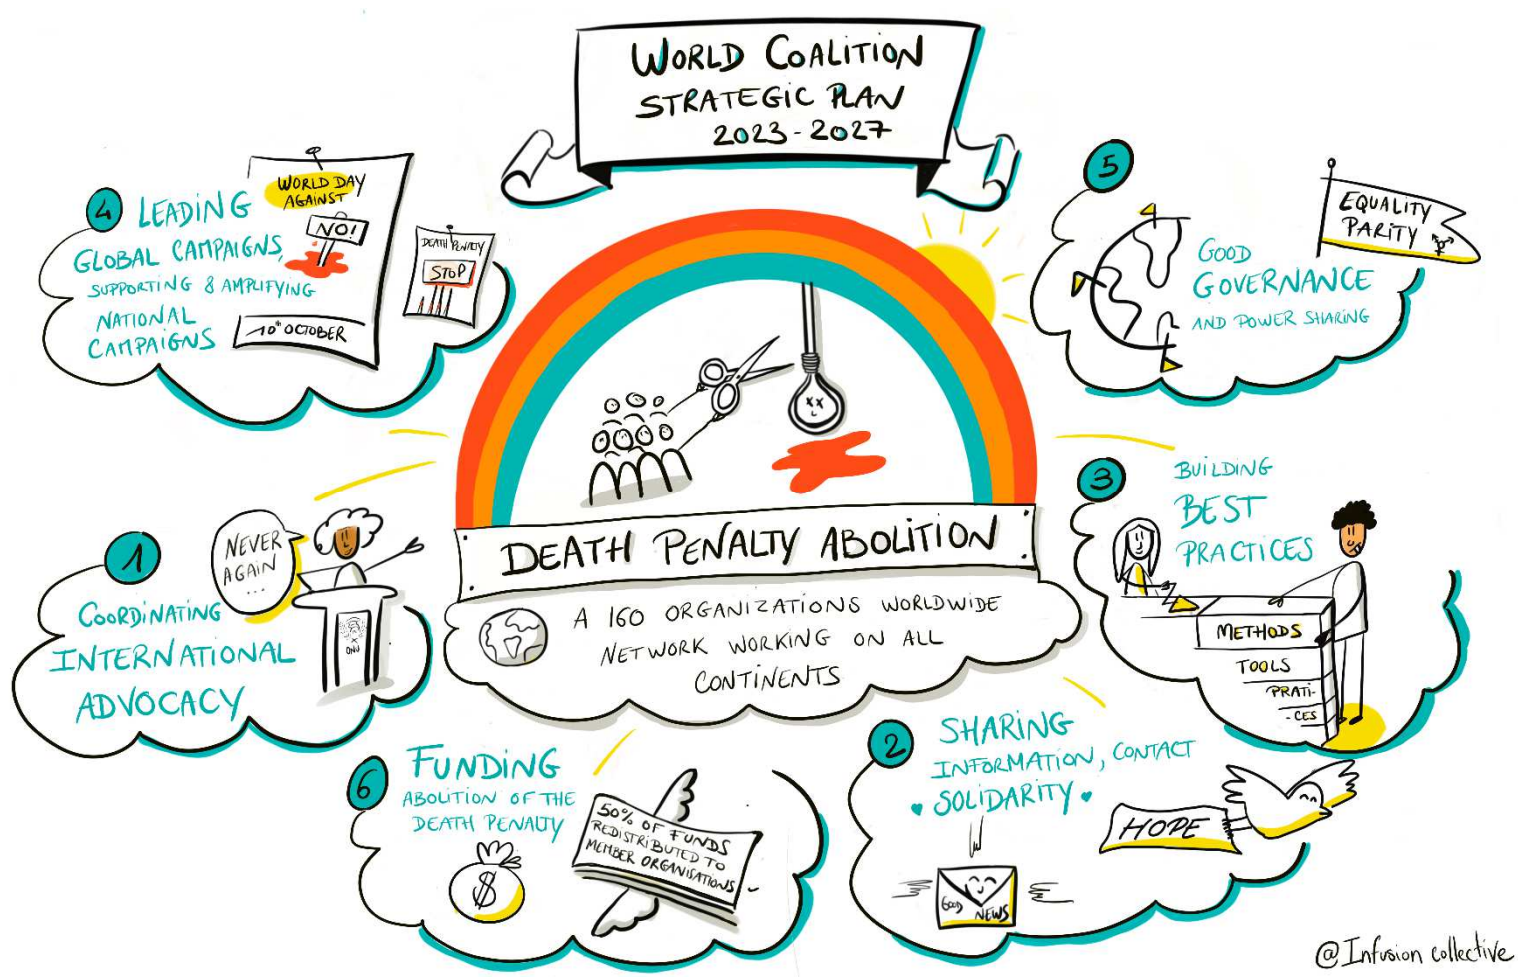 WORLD COALITION
STRATEGIC PLAN
2023-2027
4
LEADING
GLOBAL CAMPAIGNS,
SUPPORTING & AMPLIFYING
NATIONAL
CAMPAIGNS
WORLD DAY
AGAINST
NO!
10th OCTOBER
DEATH PENALTY
STOP
5
GOOD
GOVERNANCE
AND POWER SHARING
EQUALITY
PARITY
DEATH PENALTY ABOLITION
A 160 ORGANIZATIONS WORLDWIDE
NETWORK WORKING ON ALL
CONTINENTS
1
COORDINATING
INTERNATIONAL
ADVOCACY
NEVER
AGAIN
...
ONU
3
BUILDING
BEST
PRACTICES
METHODS
TOOLS
PRATI-
-CES
6
FUNDING
ABOLITION OF THE
DEATH PENALTY
$
50% OF FUNDS
REDISTRIBUTED TO
MEMBER ORGANISATIONS
2
SHARING
INFORMATION, CONTACT
♥ SOLIDARITY ♥
HOPE
GOOD NEWS
@Infusion collective